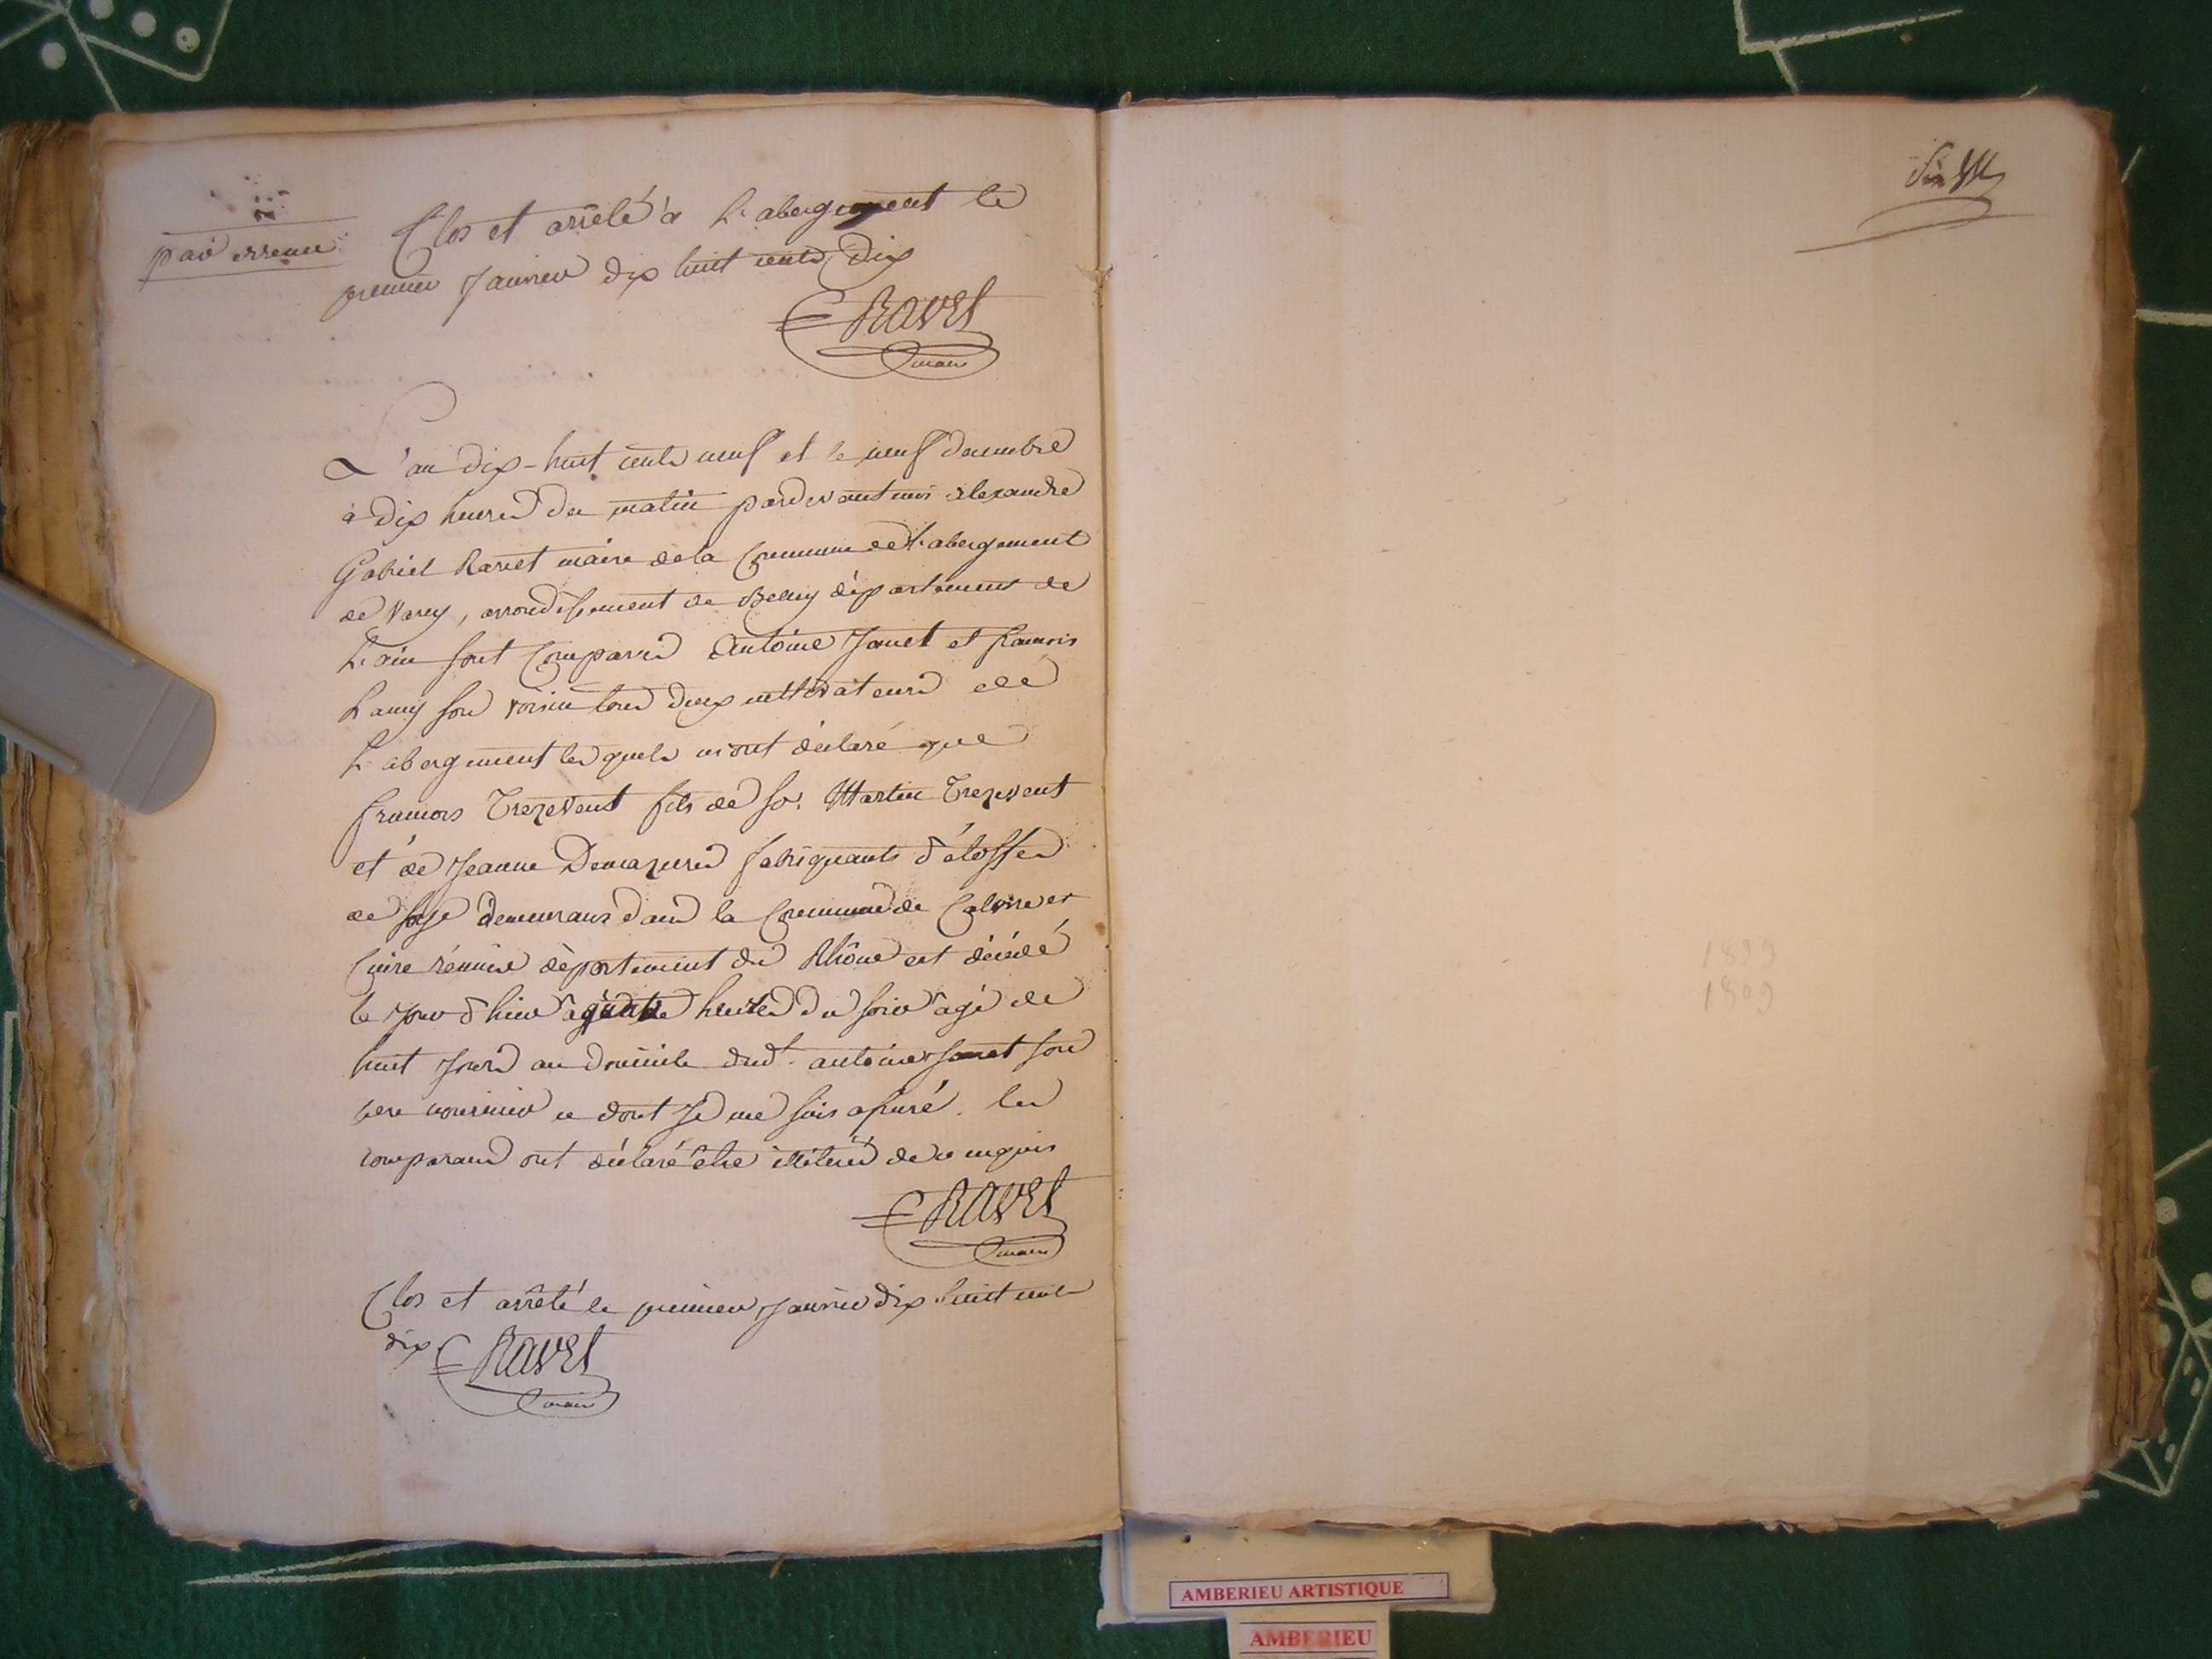 par erreur
Clos et arrêté à L'abergement le
premier Janvier dix huit cents dix
Ravet
maire
L'an dix-huit cents neuf et le neuf decembre
à dix heures du matin pardevant moi alexandre
Gabriel Ravet maire de la Commune de L'abergement
de Varey, arrondissement de Belley département de
L'ain sont Comparus Antoine Janet et francois
Lamy son voisin tous deux cultivateurs de
L'abergement lesquels m'ont déclaré que
francois Trezevent fils de sr. Martin Trezevent
et de Jeanne Demazures fabriquants d'étoffes
de soye demeurans dans la Commune de Caluire et
Cuire réunie département du Rhône est décédé
le jour d'hier à quatre heures du soir âgé de
huit jours au domicile dud. antoine Janet son
pere nouricier ce dont Je me suis assuré. les
comparans ont déclaré être illiterés de ce enquis
Ravet
maire
Clos et arrêté le premier Janvier dix huit cents
dix
Ravet
maire
1899
1809
AMBERIEU ARTISTIQUE
AMBERIEU